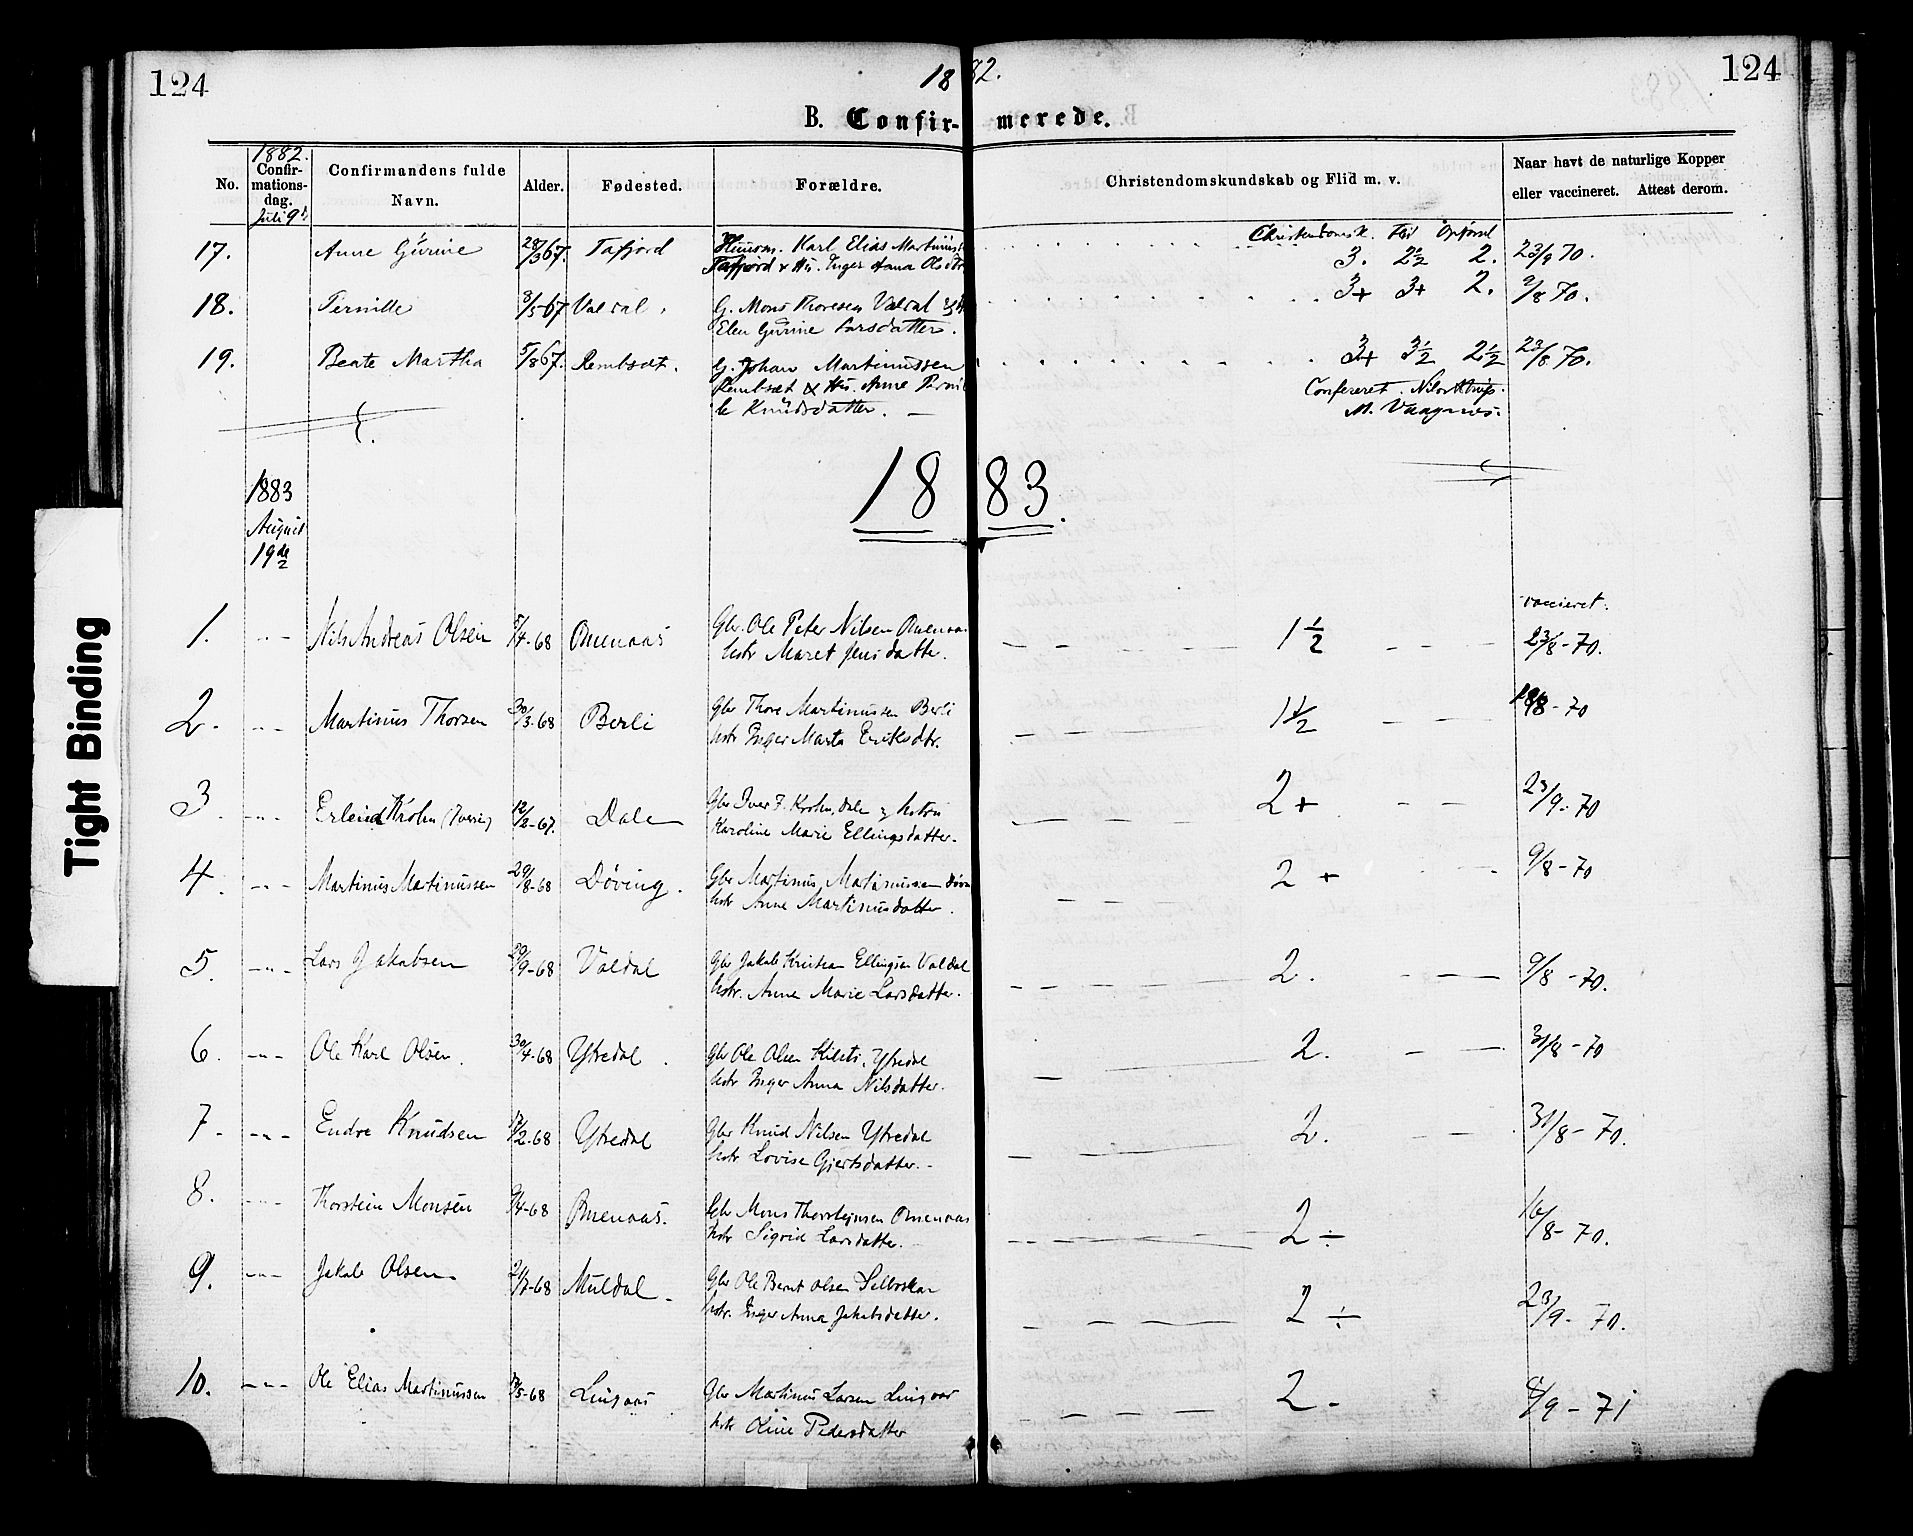 124
1882.
124
B. Confir- merede.
No.
1882.
Confir-
mations-
dag.
Juli 9de
Confirmandens fulde
Navn.
Alder.
Fødested.
Forældre.
Christendomskundskab og Flid m. v.
Naar havt de naturlige Kopper
eller vaccineret. Attest derom.
Christendomsk. Flid Opførsel
17. Anne Gurine 28/3 67. Tafjord Huusm. Karl Elias Martinus 3. 2½ 2. 23/9 70.
Tafjord & Hu. Inger Anna Olsdtr
18. Pernille 3/5-67 Valdal. G. Mons Thoresen Valdal 3+ 3+ 2. 9/8 70.
Elen Gurine Larsdatter.
19. Beate Martha 5/8 67. Rembsæt. G. Johan Martinussen 3+ 3½ 2½ 23/8 70.
Rembsæt & Hu. Anne Pernil
le Knudsdatter. —
Confereret.
M. Vaagnæs.
1883
1883.
August
19de
vaccineret.
1. Nils Andreas Olsen 7/4-68 Omenaas Gbr. Ole Peter Nilsen Omenaas 1½ 23/8-70.
hstr Maret Jensdatter.
2. Martinus Thorsen 30/3-68 Berli Gbr Thore Martinussen Berli 1½ 19/8-70
hstr Inger Marta Eriksdtr.
3. Erlend Krohn (Iversen) 12/2-67. Dale Gbr Iver F. Krohn, Dale og hstru 2+ 23/9-70
Karoline Marie Ellingsdatter.
4. Martinus Martinussen 29/8-68 Døving. Gbr Martinus Martinussen Døving 2+ 9/8-70
hstr Anne Martinusdatter.
5. Lars Jakobsen 20/9-68 Valdal Gbr Jakob Kristian Ellingsen Valdal 2. 9/8-70.
hstr. Anne Marie Larsdatter.
6. Ole Karl Olsen. 30/4-68 Ytredal. Gbr Ole Olsen Ytredal 2. 31/8-70
hstr Inger Anna Nilsdatter.
7. Endre Knudsen 17/2-68 Ytredal Gbr Knud Nilsen Ytredal 2. 31/8-70.
hstr Lovise Gjertsdatter.
8. Thorstein Monsen 9/4-68 Omenaas. Gbr Mons Thorsteinsen Omenaas 2÷ 16/8-70.
hstr Sigrid Larsdatter.
9. Jakob Olsen. 21/7-68 Muldal. Gbr Ole Bernt Olsen Selboskar 2÷ 23/9-70.
hstr. Inger Anna Jakobsdatter.
10. Ole Elias Martinussen /5-68 Lingaas Gbr Martinus Larsen Lingaas 2- 8/9-71
hstr Oline Pedersdatter
Tight Binding